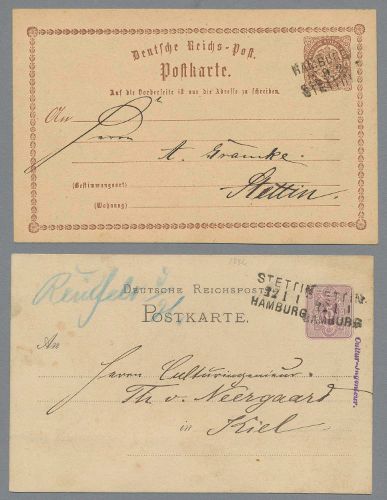 Deutsche Reichs-Post.
Postkarte.
Auf die Vorderseite ist nur die Adresse zu schreiben.
HAMBURG
STETTIN
An
Herrn
A.
Stettin.
(Bestimmungsort)
(Wohnung)
DEUTSCHE REICHSPOST
POSTKARTE.
STETTIN
HAMBURG
STETTIN
HAMBURG
An
Herrn Culturingenieur
Th. v. Neergaard
in Kiel
Cultur-Ingenieur.